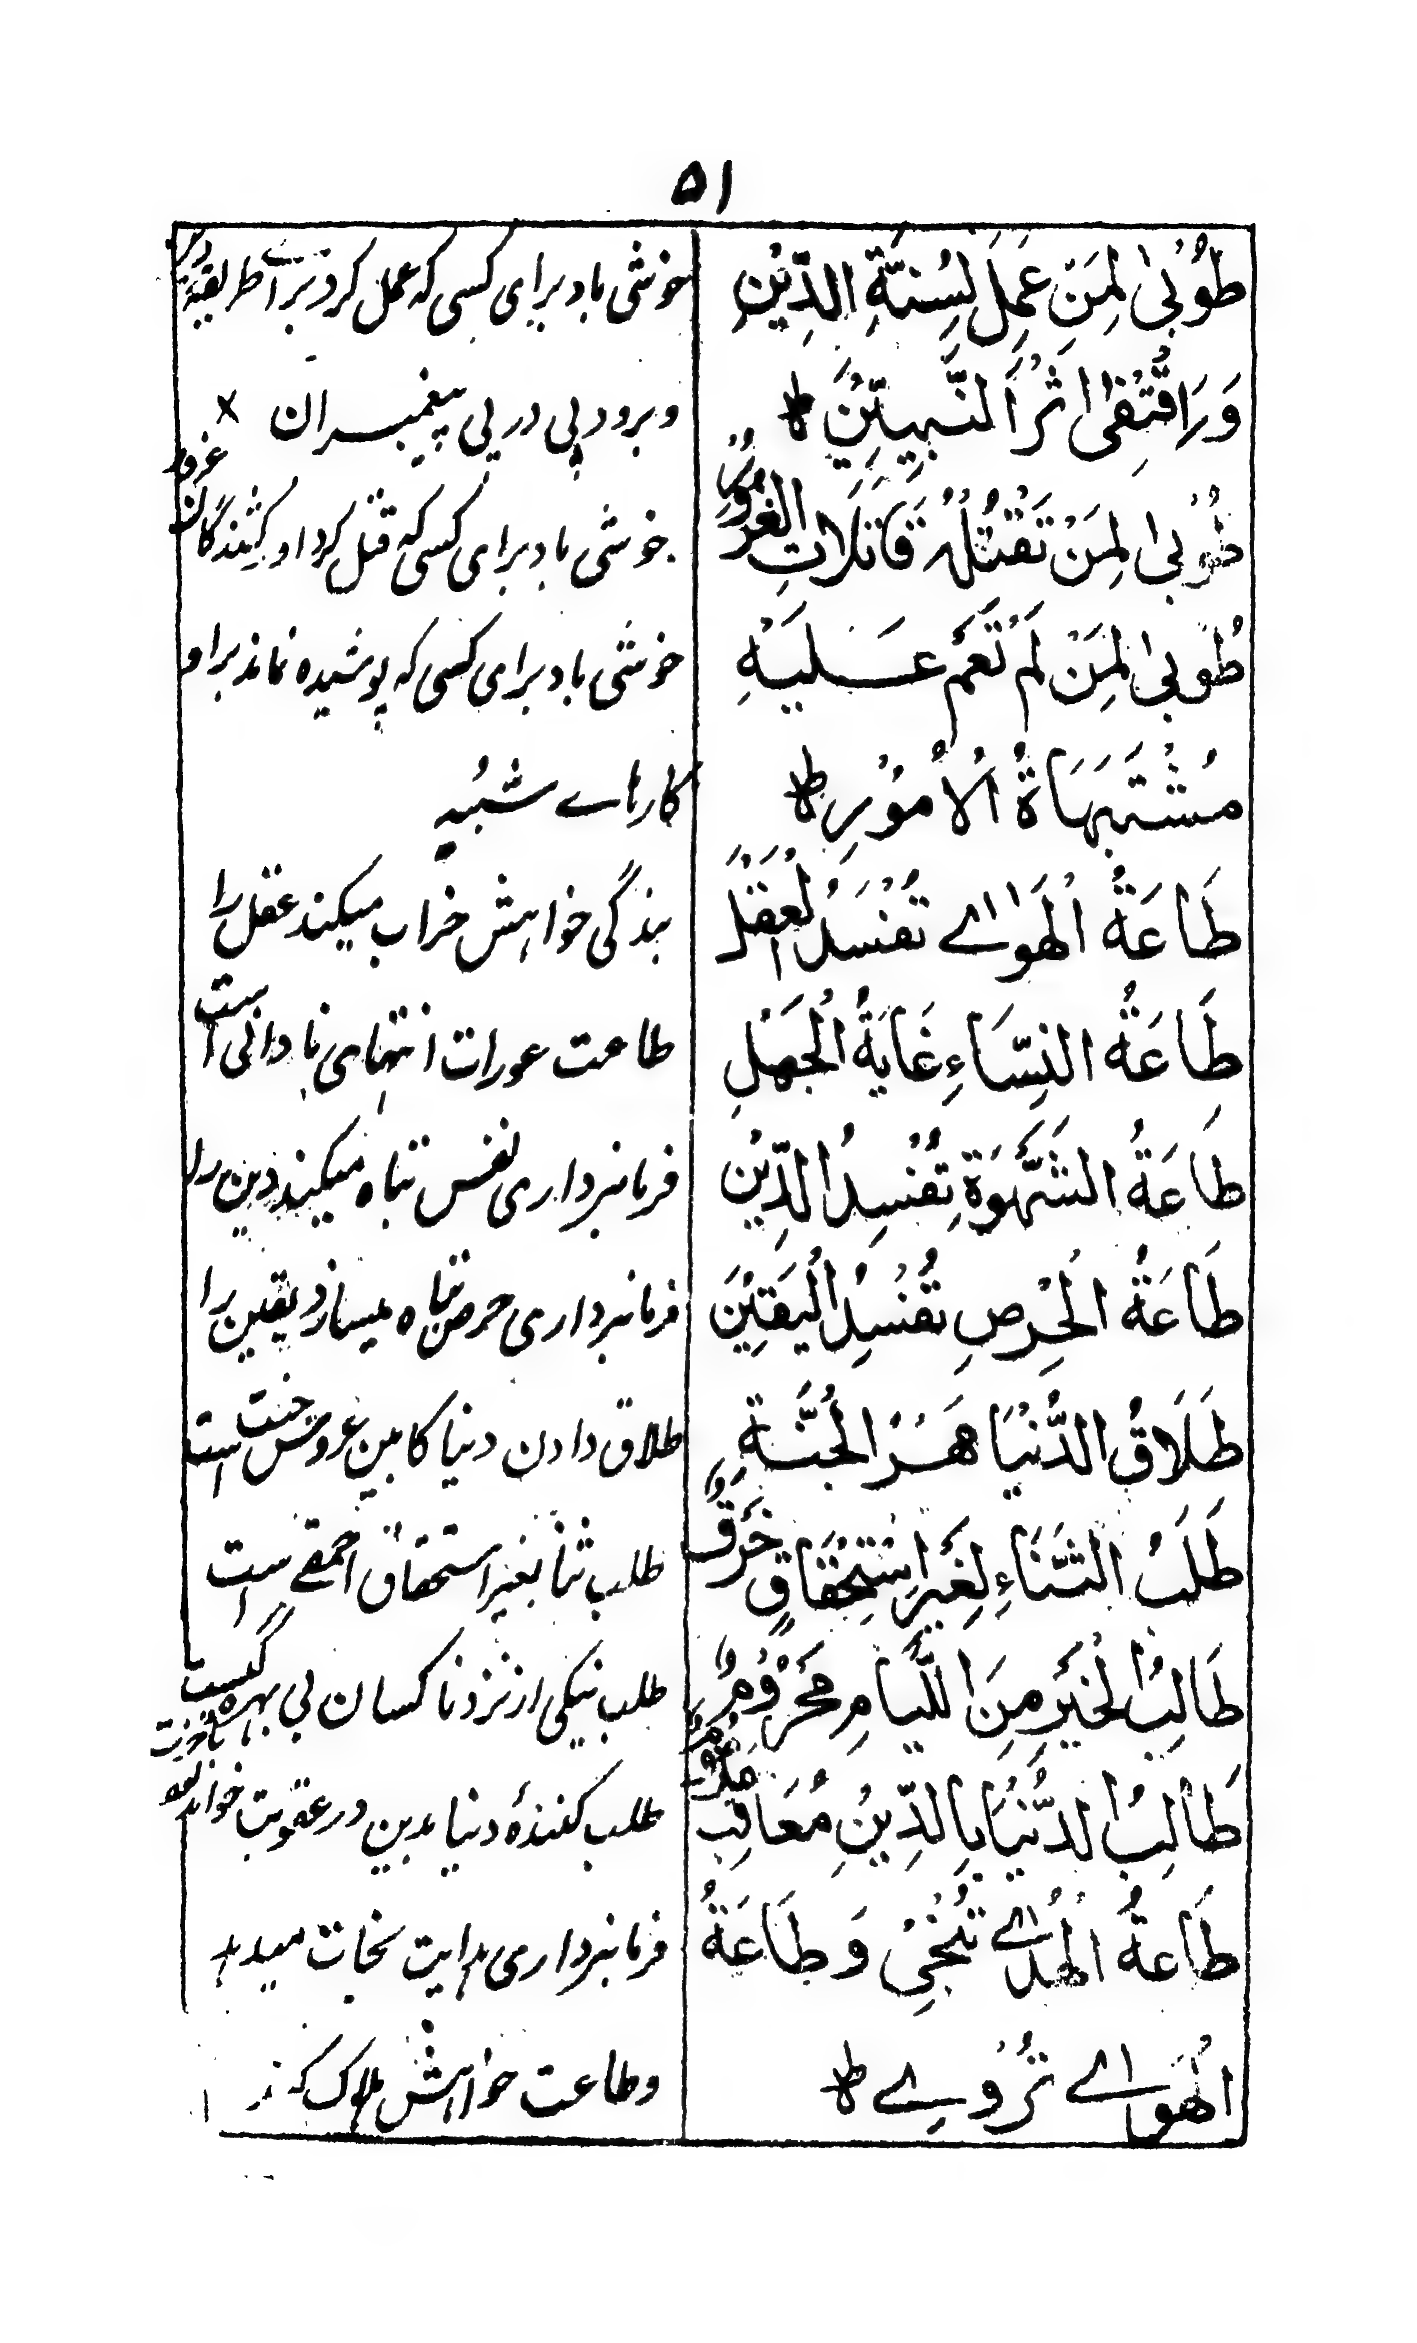 ۵۱
طُوْبٰى لِمَنْ عَمِلَ لِسُنَّةِ الدِّيْنِ
خوشی باد برای کسی که عمل کرد برای طریقهٔ دین
وَرَاقْتَفٰى اَثْرَ النَّبِيِّيْنَ ط
و برود پی در پی پیغمبران ×
طُوْبٰى لِمَنْ تَقْتُلْهُ قَاتِلَاتِ الْغُرُوْرِ
خوشی باد برای کسی که قتل کرد او کشندگان غرور
طُوْبٰى لِمَنْ لَمْ تَعُمْ عَلَيْهِ
خوشی باد برای کسی که پوشیده نماند بر او
مُشْتَبَهَاةُ الْاُمُوْرِ ط
کارهاے شبیه
طَاعَةُ الْهَوٰاے تُفْسَدُ الْعَقْلَ
بندگی خواهش خراب میکند عقل را
طَاعَةُ النِّسَاءِ غَايَةُ الْجَهْلِ
طاعت عورات انتهای نادانی است
طَاعَةُ الشَّهْوَةِ تُفْسِدُ الدِّيْنَ
فرمانبرداری نفس تباه میکند دین را
طَاعَةُ الْحِرْصِ تُفْسِدُ الْيَقِيْنَ
فرمانبرداری حرص تباه میسازد یقین را
طَلَاقُ الدُّنْيَا مَهْرُ الْجَنَّةِ
طلاق دادن دنیا کابین عروس جنت است
طَلَبُ الثَّنَاءِ لِغَيْرِ اسْتِحْقَاقٍ خُرْقٌ
طلب ثنا بغیر استحقاق احمقے است
طَالِبُ الْخَيْرِ مِنَ اللِّيَامِ مَحْرُوْمٌ
طلب نیکی از نزد ناکسان بی بهره
طَالِبُ الدُّنْيَا بِالدِّيْنِ مُعَاقِبٌ
طلب کنندهٔ دنیا بدین در عقوبت خواهد
طَاعَةُ الْهُدٰاے تُنْجِيْ وَ طَاعَةُ
فرمانبرداری هدایت نجات میدهد
الْهَوٰاے تُرْوِے ط
و طاعت خواهش هلاک